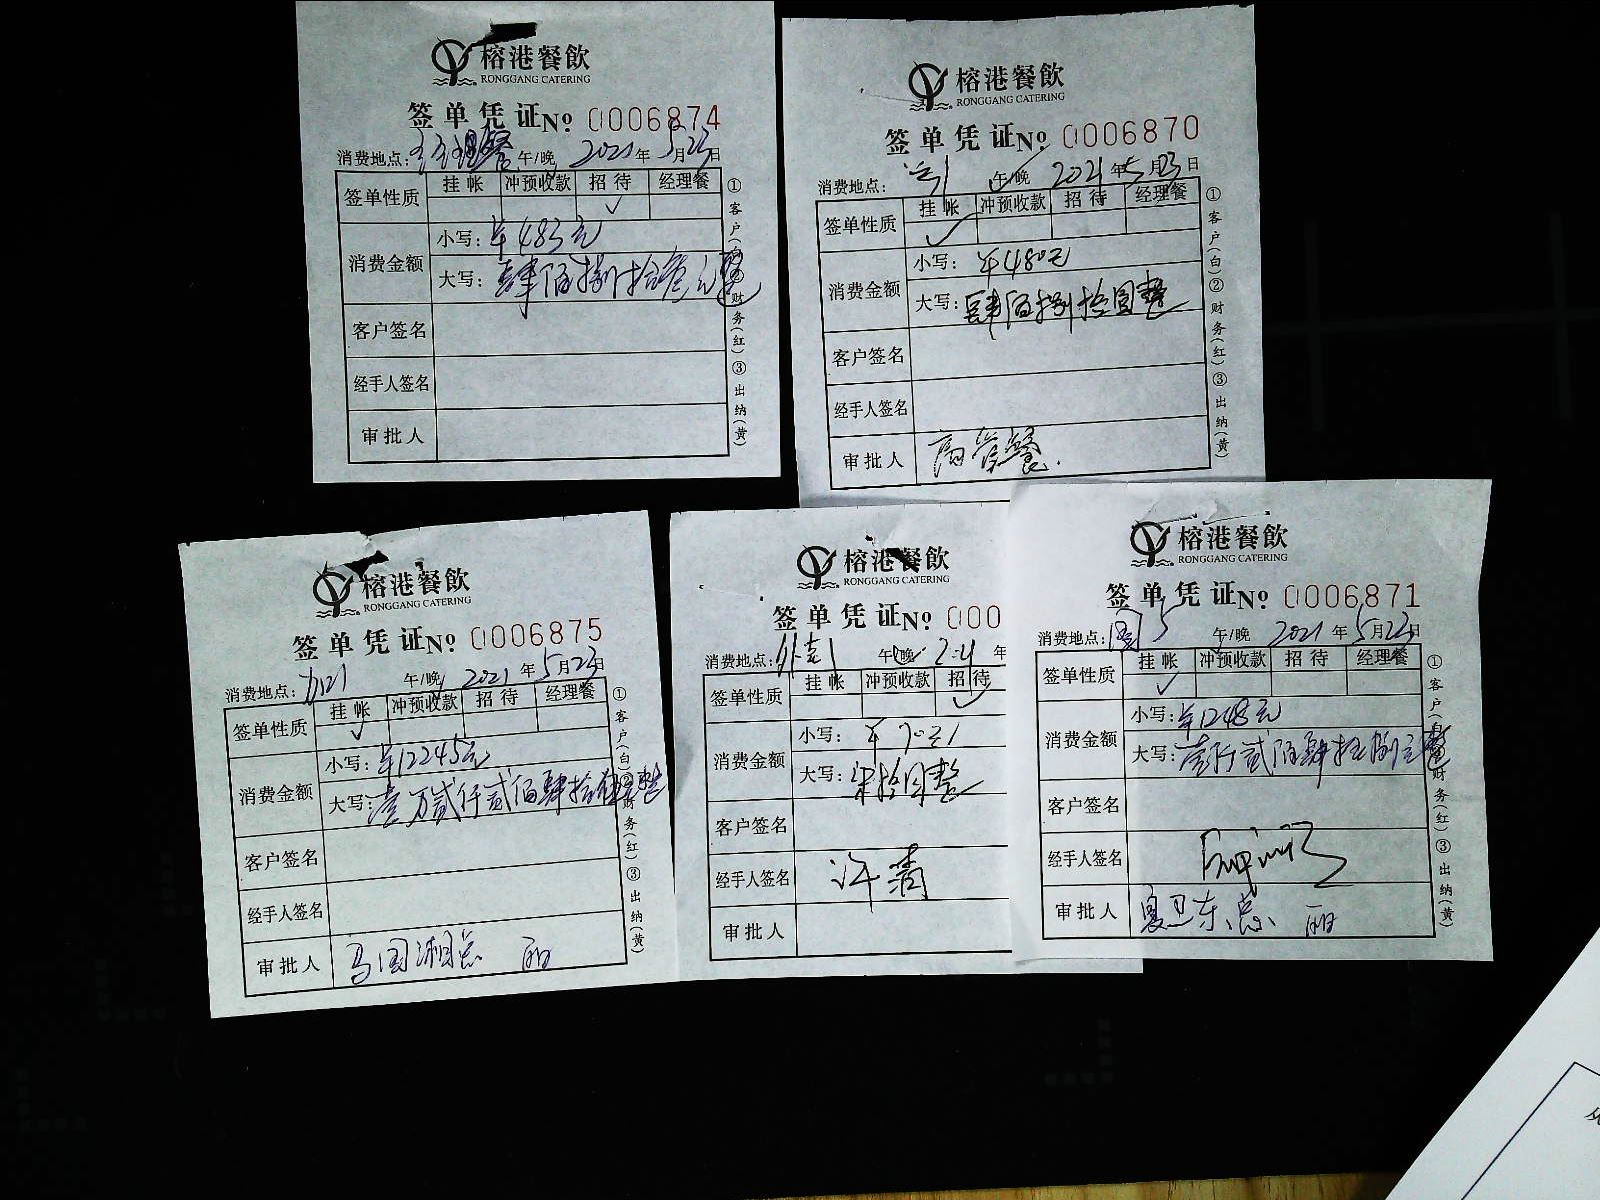 榕港餐飲
RONGGANG CATERING
签单凭证 № 0006874
消费地点: 经理餐 午/晚 2021年5月23日
签单性质 挂帐 冲预收款 招待 经理餐
✓
消费金额 小写: ¥483元
大写: 肆佰捌拾叁元整
客户签名
经手人签名
审批人
①客户(白)②财务(红)③出纳(黄)
榕港餐飲
RONGGANG CATERING
签单凭证 № 0006870
消费地点: 午/晚 2021年5月23日
签单性质 挂帐 冲预收款 招待 经理餐
✓
消费金额 小写: ¥480元
大写: 肆佰捌拾圆整
客户签名
经手人签名
审批人 高管餐.
①客户(白)②财务(红)③出纳(黄)
榕港餐飲
RONGGANG CATERING
签单凭证 № 0006875
消费地点: 午/晚 2021年5月23日
签单性质 挂帐 冲预收款 招待 经理餐
✓
消费金额 小写: ¥12245元
大写: 壹万贰仟贰佰肆拾伍元整
客户签名
经手人签名
审批人 马国湘总
①客户(白)②财务(红)③出纳(黄)
榕港餐飲
RONGGANG CATERING
签单凭证 № 000
消费地点: 午/晚 年
签单性质 挂帐 冲预收款 招待
✓
消费金额 小写: ¥70元
大写: 柒拾圆整
客户签名
经手人签名 许青
审批人
榕港餐飲
RONGGANG CATERING
签单凭证 № 0006871
消费地点: 午/晚 2021年5月23日
签单性质 挂帐 冲预收款 招待 经理餐
✓
消费金额 小写: ¥1248元
大写: 壹仟贰佰肆拾捌元整
客户签名
经手人签名
审批人 夏卫东总
①客户(白)②财务(红)③出纳(黄)